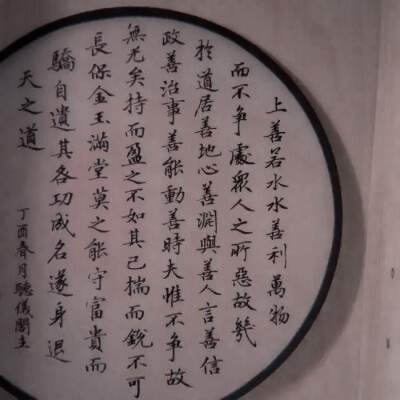 上善若水水善利萬物
而不争處眾人之所惡故幾
於道居善地心善淵與善人言善信
政善治事善能動善時夫惟不争故
無尤矣持而盈之不如其已揣而銳不可
長保金玉滿堂莫之能守富貴而
驕自遺其咎功成名遂身退
天之道
丁酉春月聽儀閣主